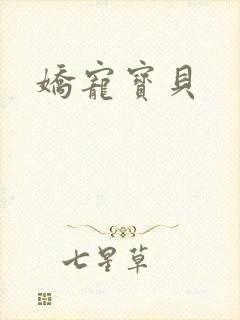 嬌寵寶貝
七星草